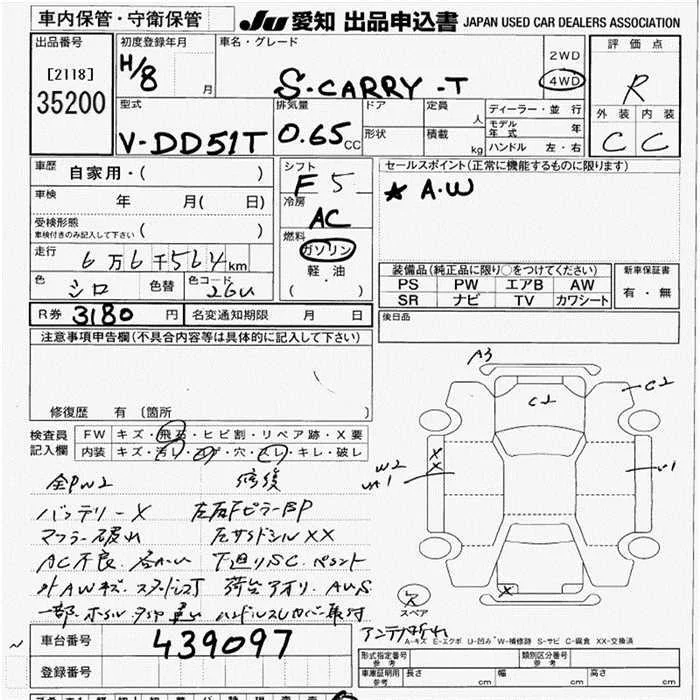 車内保管・守衛保管
JU 愛知 出品申込書 JAPAN USED CAR DEALERS ASSOCIATION
出品番号
[2118]
35200
初度登録年月
H/8
月
車名・グレード
S-CARRY-T
2WD
4WD
評価点
R
外装 内装
C C
型式
V-DD51T
排気量
0.65 CC
ドア
形状
定員
人
積載
kg
ディーラー・並行
モデル年式 年
ハンドル 左・右
車歴 自家用・( )
車検 年 月( 日)
受検形態
車検付きのみ記入して下さい ( )
走行 6万6千564km
色 シロ 色替 色コード 26U
シフト
F5
冷房
AC
燃料
ガソリン
軽油
・
( )
セールスポイント(正常に機能するものに限ります)
★ A・W
装備品(純正品に限り○をつけてください)
PS PW エアB AW
SR ナビ TV カワシート
新車保証書
有・無
R券 3180 円 名変通知期限 月 日
後日品
注意事項申告欄(不具合内容等は具体的に記入して下さい)
修復歴 有 〔箇所 〕
検査員記入欄
FW キズ・飛石・ヒビ割・リペア跡・X要
内装 キズ・汚レ・コゲ・穴・スレ・キレ・破レ
全PW2 修復
バッテリーX 左右FピラーBP
マフラー破れ 左サイドシルXX
AC不良 下廻りSC
A3
C2
C2
X
X
W2
UA1
U1
X
スペア
アンテナ折れ
車台番号 439097
登録番号
A-キズ E-エクボ U-凹み W-補修跡 S-サビ C-腐食 XX-交換済
形式指定番号
参考
類別区分番号
参考
車庫証明用
参考
長さ cm 幅 cm 高さ cm